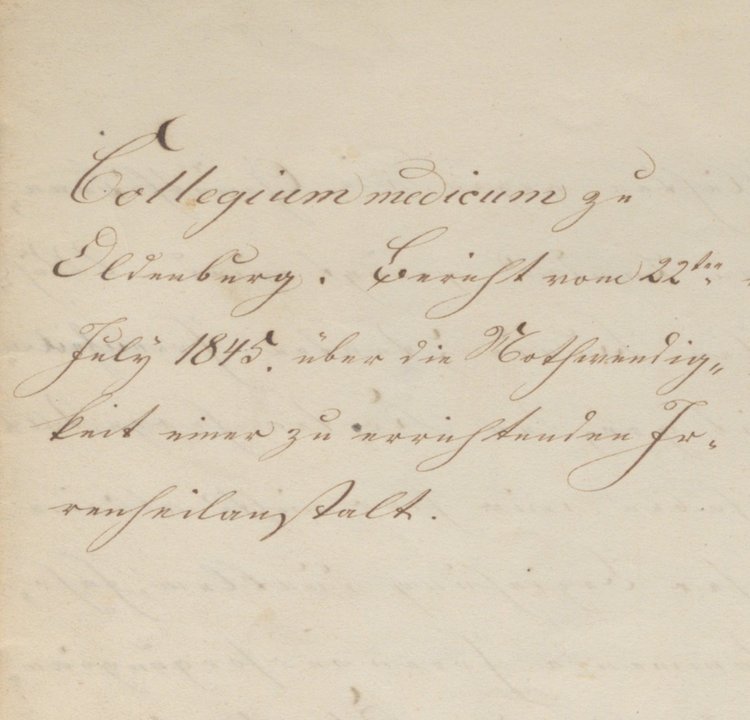 Collegium medicum zu
Oldenburg. Bericht vom 22ten
July 1845. über die Nothwendig-
keit einer zu errichtenden Ir-
renheilanstalt.